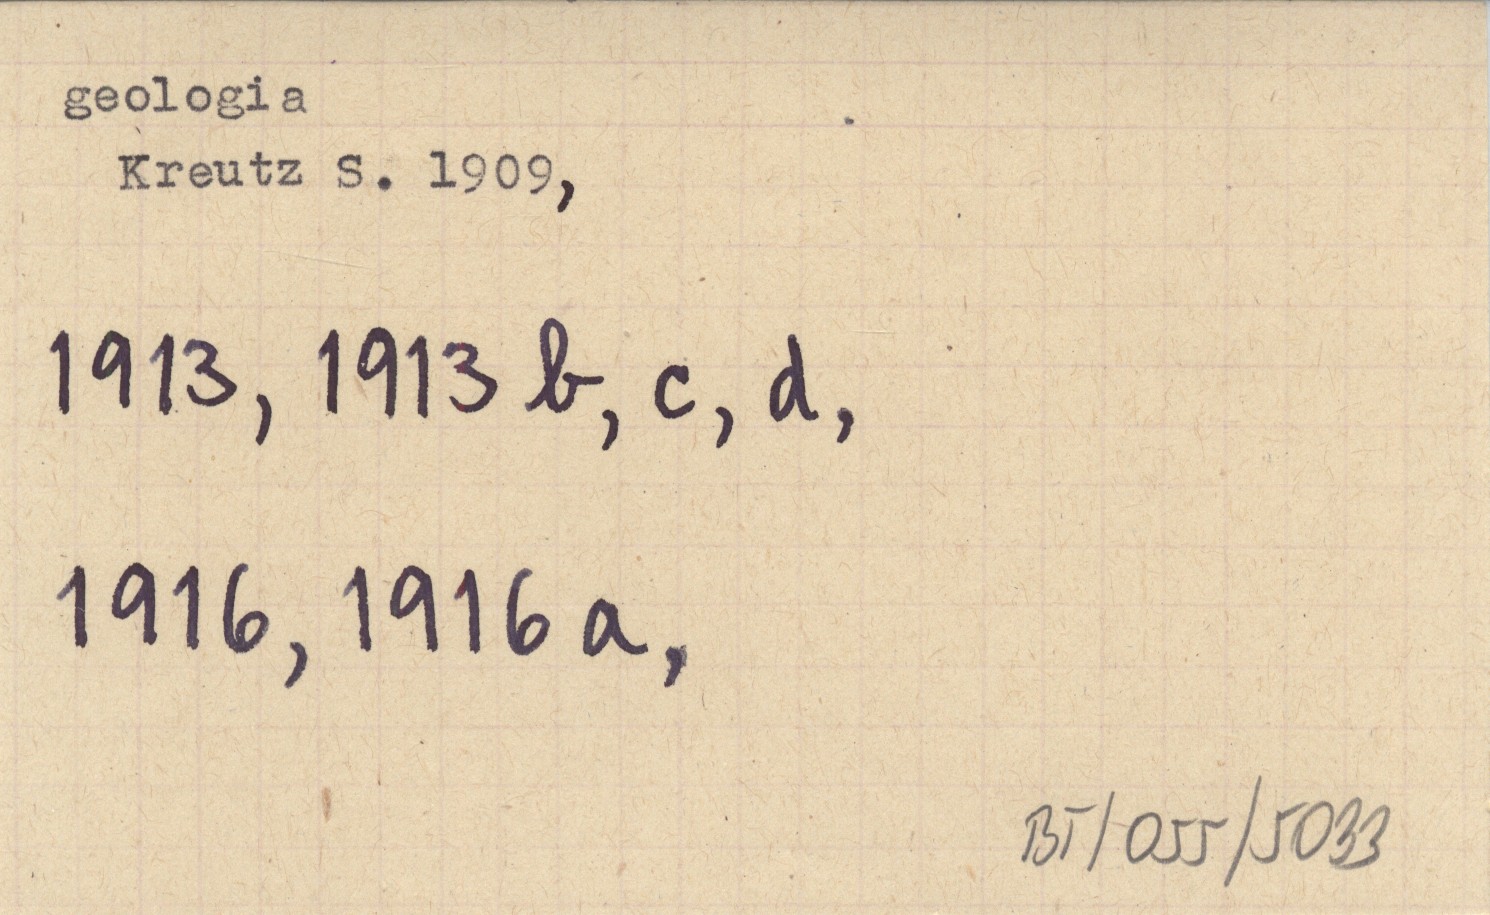 geologia
Kreutz S. 1909,
1913, 1913 b, c, d,
1916, 1916 a,
BT/055/5033